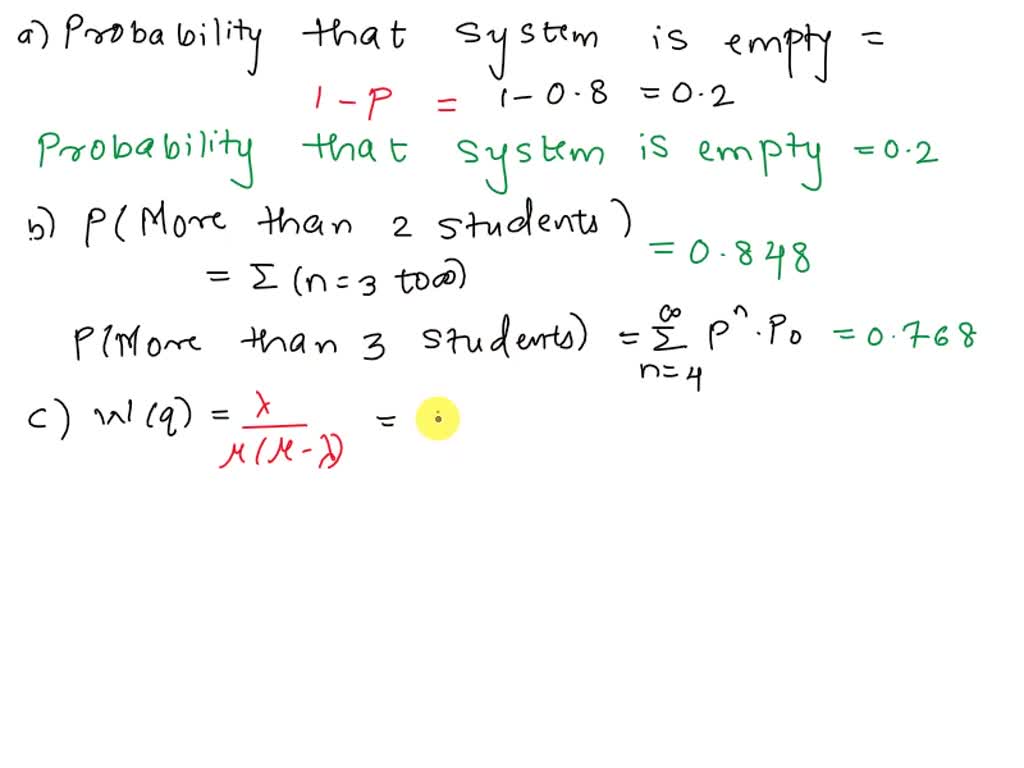 a) Probability that system is empty =
1 - P = 1 - 0.8 = 0.2
Probability that system is empty = 0.2
b) P(More than 2 students)
= Σ (n = 3 to ∞) = 0.848
P(More than 3 students) = ∑_{n=4}^{∞} P^n . P₀ = 0.768
c) W(q) = λ / μ(μ - λ) =